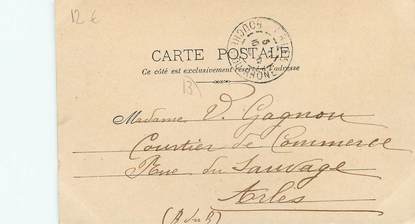 12 €
CARTE POSTALE
Ce côté est exclusivement réservé à l'adresse
Madame V. Gagnon
Courtier de Commerce
Rue du Sauvage
Arles
(B du R)